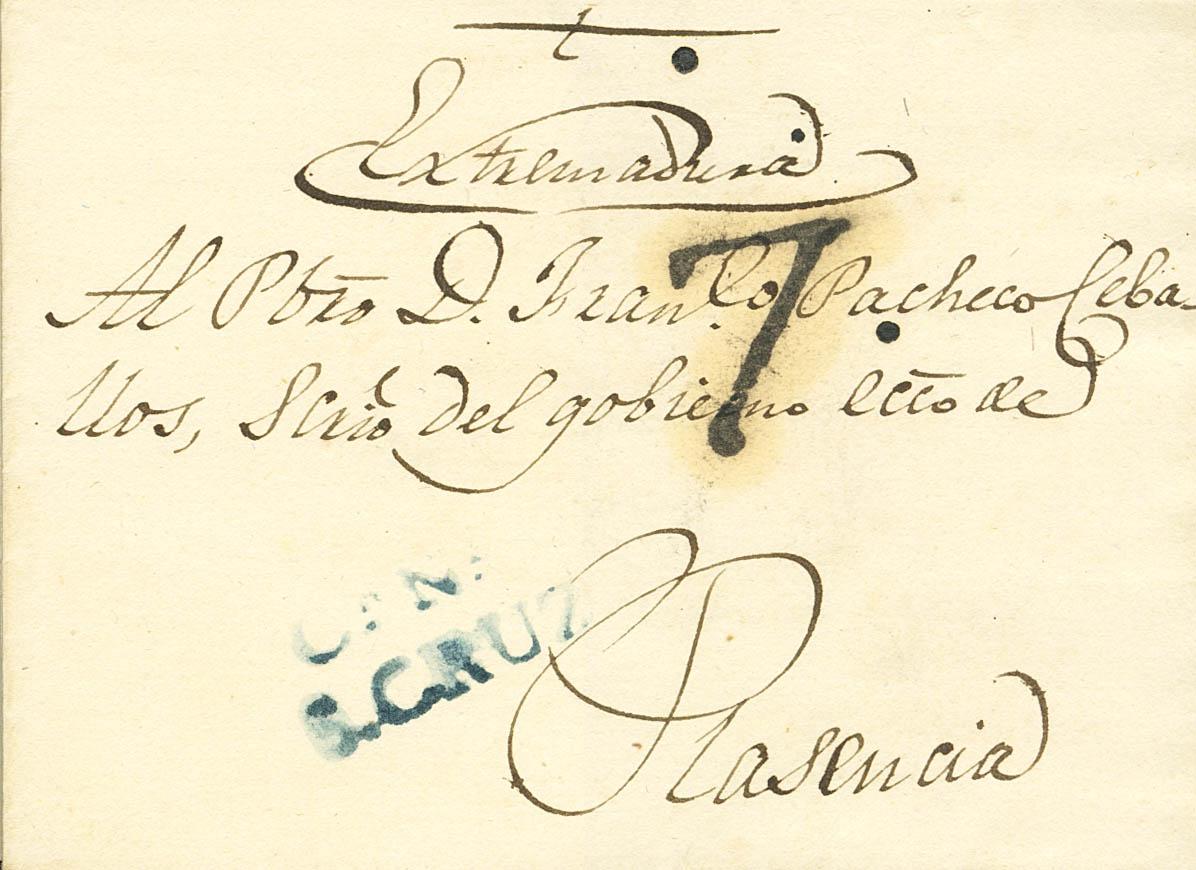 t
Extremadura
7
Al Pbro D. Fran.co Pacheco Ceba-
llos, Scrio del gobierno ecco de
CAN.
S.CRUZ
Plasencia